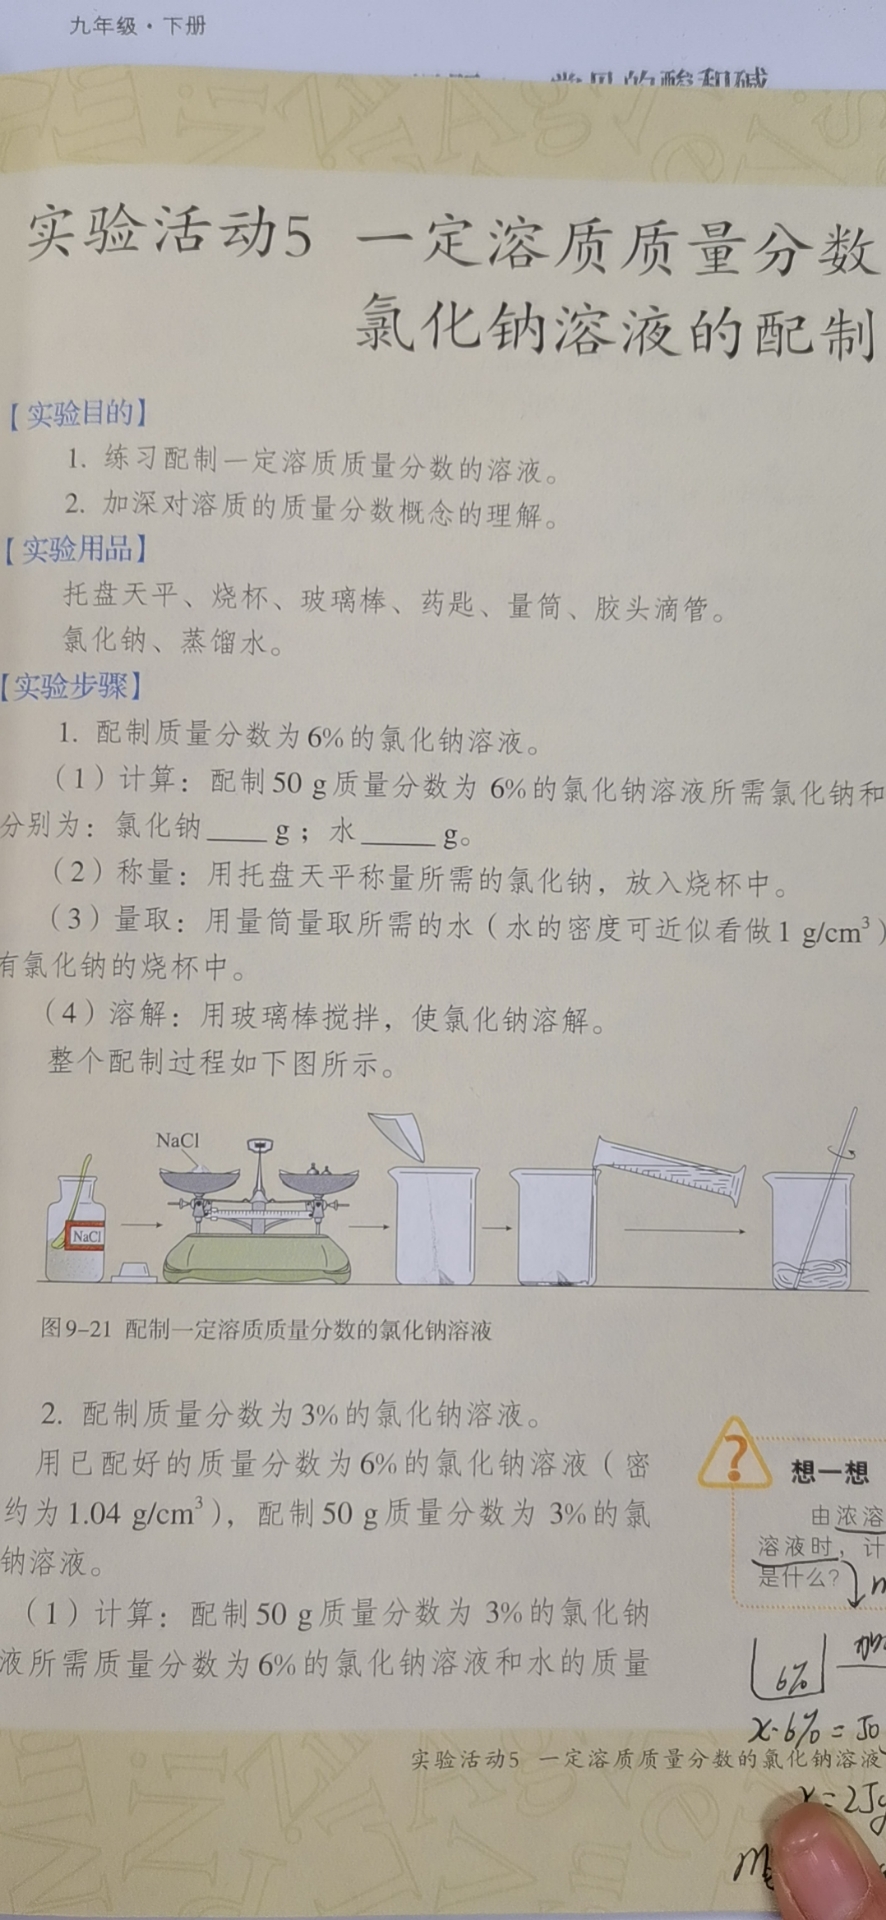 九年级·下册
常见的酸和碱
实验活动5 一定溶质质量分数
氯化钠溶液的配制
【实验目的】
1. 练习配制一定溶质质量分数的溶液。
2. 加深对溶质的质量分数概念的理解。
【实验用品】
托盘天平、烧杯、玻璃棒、药匙、量筒、胶头滴管。
氯化钠、蒸馏水。
【实验步骤】
1. 配制质量分数为6%的氯化钠溶液。
（1）计算：配制50 g质量分数为 6%的氯化钠溶液所需氯化钠和
分别为：氯化钠____g；水_____g。
（2）称量：用托盘天平称量所需的氯化钠，放入烧杯中。
（3）量取：用量筒量取所需的水（水的密度可近似看做1 g/cm³）
有氯化钠的烧杯中。
（4）溶解：用玻璃棒搅拌，使氯化钠溶解。
整个配制过程如下图所示。
NaCl
NaCl
图9-21 配制一定溶质质量分数的氯化钠溶液
2. 配制质量分数为3%的氯化钠溶液。
用已配好的质量分数为6%的氯化钠溶液（密
约为1.04 g/cm³），配制50 g质量分数为 3%的氯
钠溶液。
（1）计算：配制50 g质量分数为 3%的氯化钠
液所需质量分数为6%的氯化钠溶液和水的质量
?
想一想
由浓溶
溶液时，计
是什么？
6%
x·6%=50
x=25g
实验活动5 一定溶质质量分数的氯化钠溶液